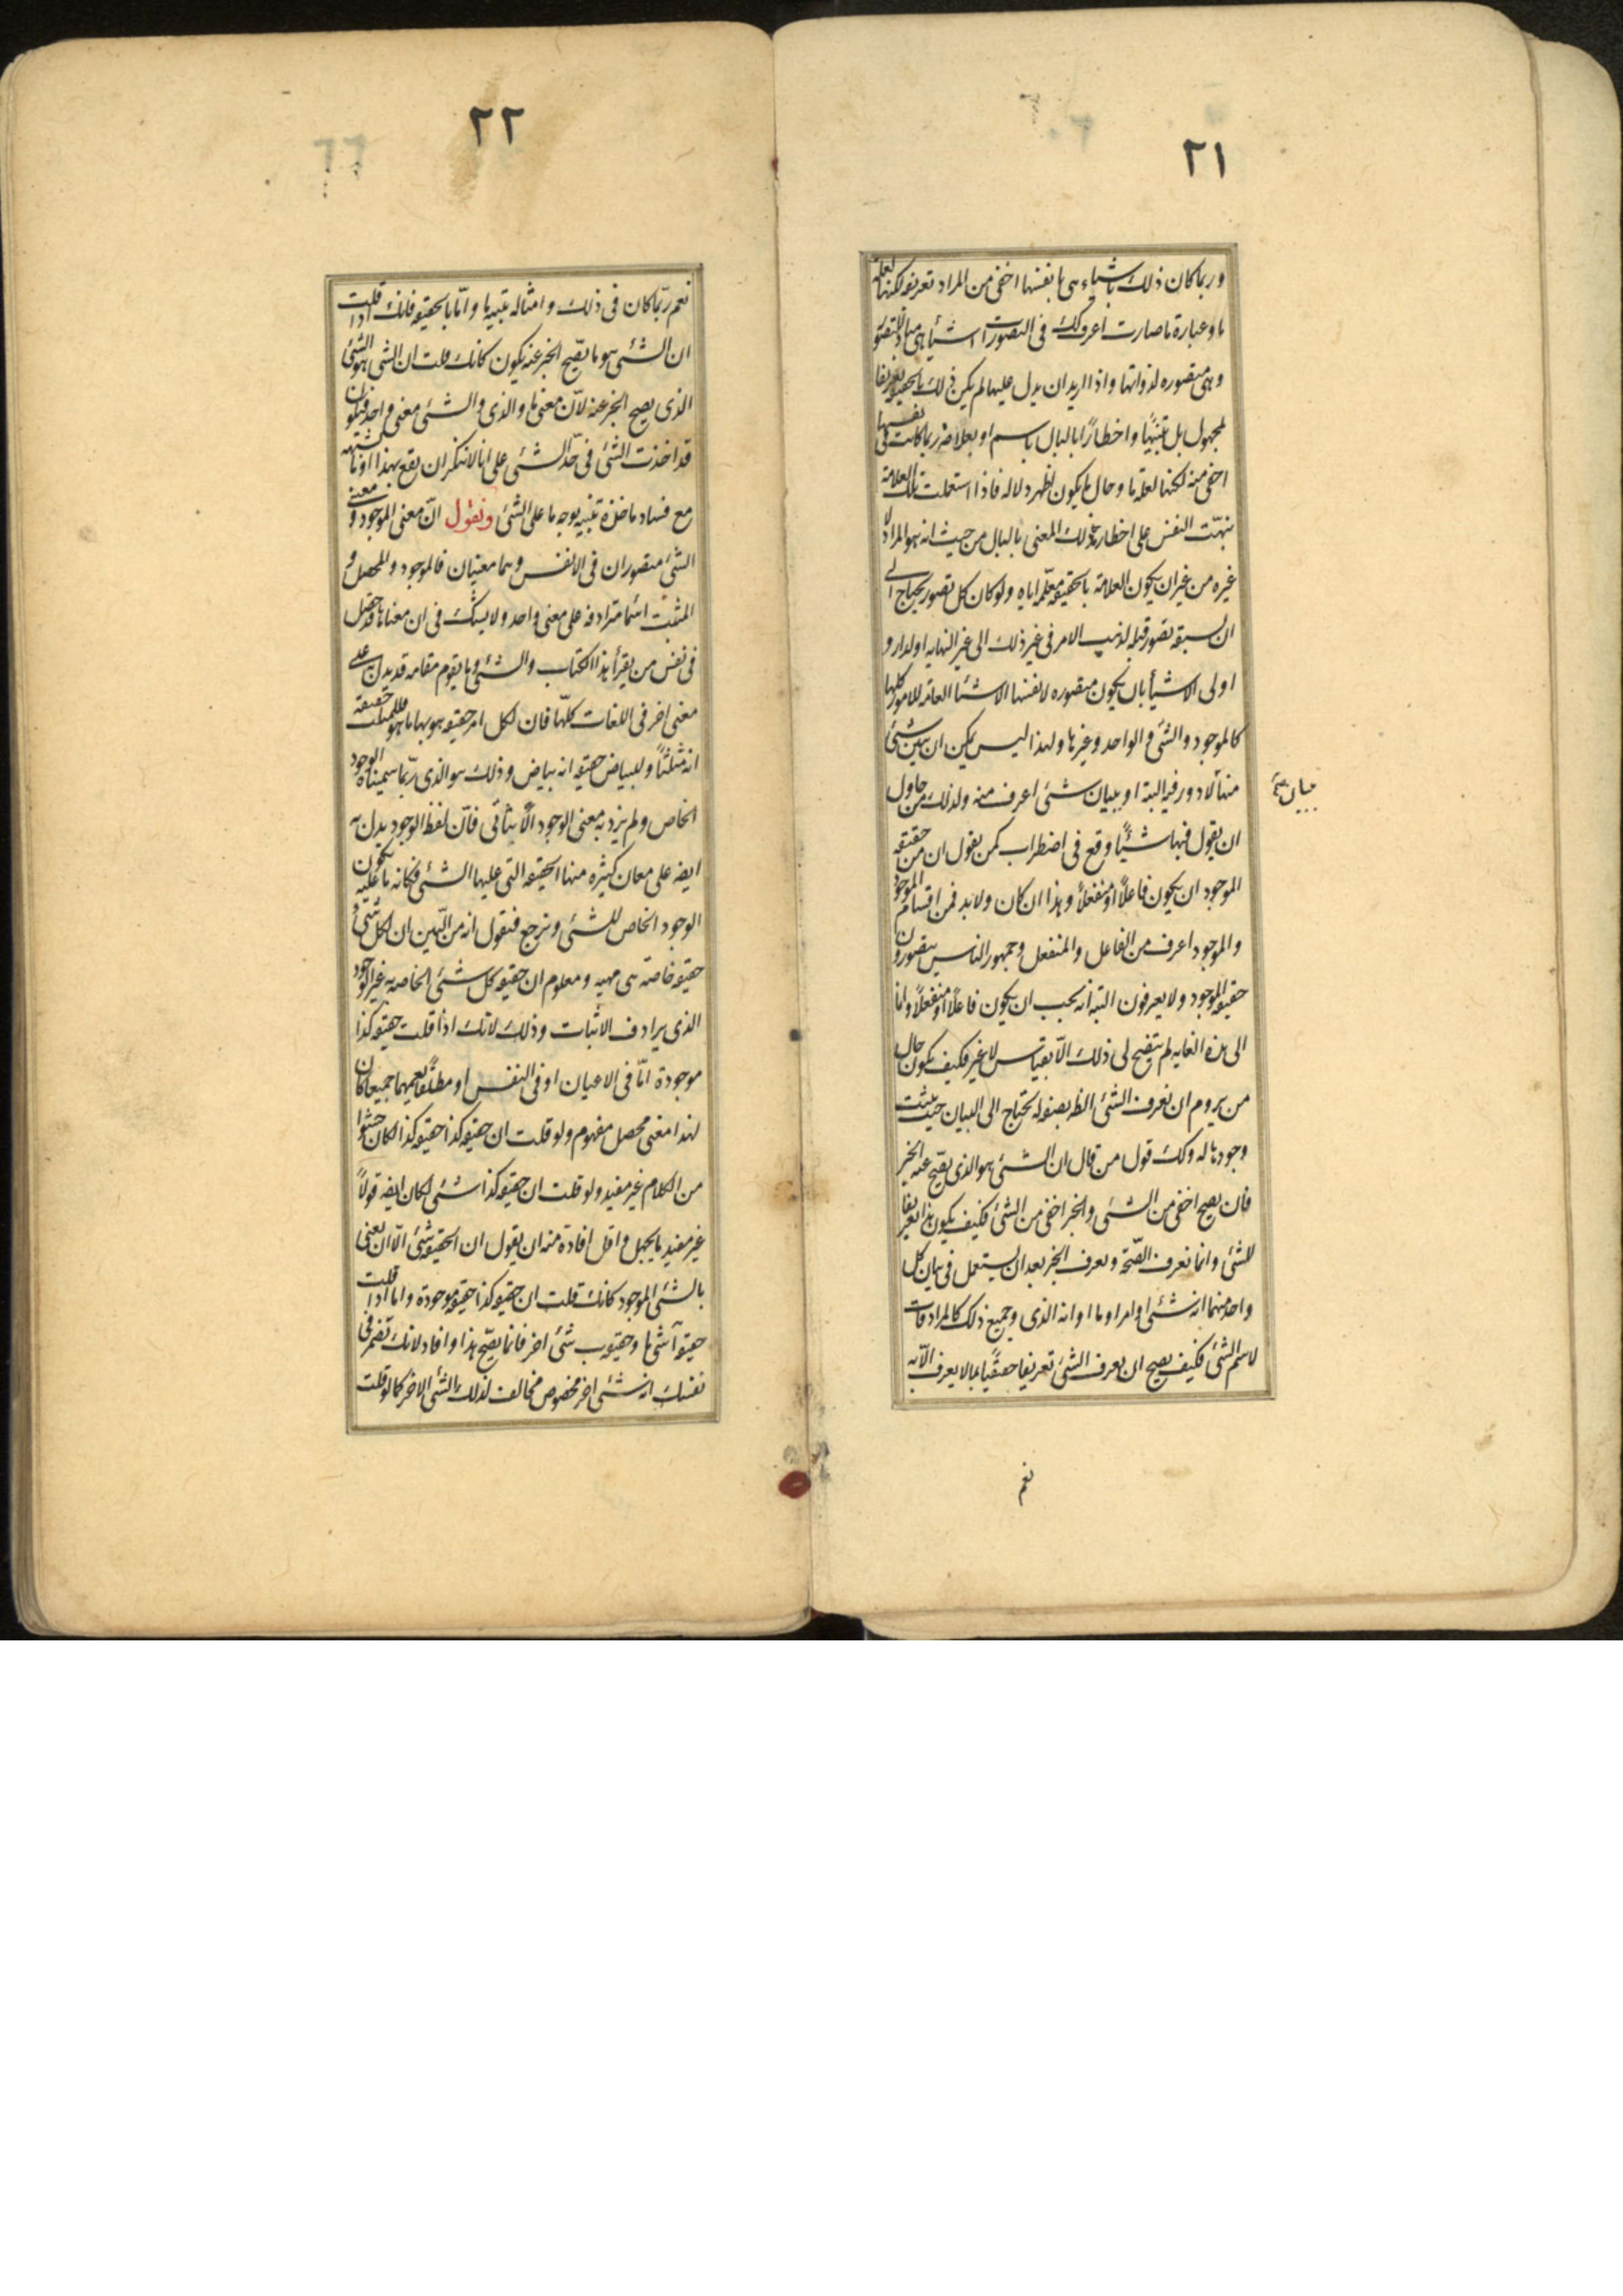 ٢١
وربما كان ذلك باشياء هى بانفسها اخفى من المراد تعريفه لكنها لعلة
ما وعبارة ما صارت اعرف وكك فى التصورات اشيأ هى مباد للتصور
وهى متصوره لذواتها واذا اريد ان يدل عليها لم يكن ذلك بالحقيقه تعريفا
لمجهول بل تنبيهًا واخطارًا بالبال باسم او بعلامة ربما كانت فى نفسها
اخفى منه لكنها لعلة ما وحال ما يكون اظهر دلاله فاذا استعملت تلك العلامة
نبهّت النفس على اخطار ذلك المعنى بالبال من حيث انه هو المراد لا
غيره من غير ان يكون العلامة بالحقيقه معلّمه اياه ولو كان كل تصور يحتاج الى
ان يسبقه تصور قبله لذهب الامر فى غير ذلك الى غير النهايه او لدار و
اولى الاشيأ بان يكون متصوره لانفسها الاشيأ العامّه للامور كلها
كالموجود والشئ والواحد وغيرها ولهذا ليس يمكن ان يبين شئ
منها لا دور فيه البته او ببيان شئ اعرف منه ولذلك من حاول
بيان صح
ان يقول فيها شيئًا وقع فى اضطراب كمن يقول ان من حقيقه
الموجود ان يكون فاعلًا او منفعلًا وهذا ان كان ولا بد فمن اقسام الموجود
والموجود اعرف من الفاعل والمنفعل وجمهور الناس يتصورون
حقيقه الموجود ولا يعرفون البته انه يجب ان يكون فاعلًا او منفعلًا وانا
الى هذه الغايه لم يتضح لى ذلك الّا بقياس لا غير فكيف يكون حال
من يروم ان يعرف الشئ الظ بصفه له تحتاج الى البيان حيث يثبت
وجودها له وكك قول من قال ان الشئ هو الذى يصّح عنه الخبر
فان يصح اخفى من الشئ والخبر اخفى من الشئ فكيف يكون هذا تعريفا
للشئ وانما تعرف الصّحة ويعرف الخبر بعد ان يستعمل فى بيان كل
واحد منهما انه شئ او امر او ما او انه الذى وجميع ذلك كالمرادفات
لاسم الشئ فكيف يصح ان يعرف الشئ تعريفا حقيقيًا بما لا يعرف الّا به
نعم
٢٢
نعم ربّما كان فى ذلك وامثاله تنبيه ما وامّا بالحقيقه فانك اذا قلت
ان الشئ هو ما يصّح الخبر عنه يكون كانك قلت ان الشئ هو الشئ
الذى يصح الخبر عنه لانّ معنى ما والذى والشئ معنى واحد فيكون
قد اخذت الشئ فى حدّ الشئ على انا لا ننكر ان يقع بهذا او ما يشبهه
مع فساد ماخذه تنبيه بوجه ما على الشئ ونقول انّ معنى الموجود ومعنى
الشئ متصوران فى الانفس وهما معنيان فالموجود والمحصل و
المثبت اسمأ مترادفه على معنى واحد ولا يشك فى ان معناها قد حصل
فى نفس من يقرأ هذا الكتاب والشئ وما يقوم مقامه قد يدل على
معنى اخر فى اللغات كلّها فان لكل امر حقيقه هو بها ما هو فللمثلث حقيقة
انه مثلثًا وللبياض حقيقه انه بياض وذلك هو الذى ربّما سميناه الوجود
الخاص ولم يرد به معنى الوجود الاثباتى فانّ لفظ الوجود يدل به
ايضه على معان كثيره منها الحقيقه التى عليها الشئ فكانه ما عليه يكون
الوجود الخاص للشئ ونرجع فنقول انه من البّين ان لكل شئ
حقيقه خاصه هى مهيه ومعلوم ان حقيقه كل شئ الخاصه به غير الوجود
الذى يرادف الاثبات وذلك لانك اذا قلت حقيقه كذا
موجودة امّا فى الاعيان او فى النفس او مطلقًا يعمهما جميعا كان
لهذا معنى محصل مفهوم ولو قلت ان حقيقه كذا حقيقه كذا لكان حشوا
من الكلام غير مفيد ولو قلت ان حقيقه كذا شئ لكان ايضه قولاً
غير مفيد ما يجهل واقل افادة منه ان يقول ان الحقيقه شئ الّا ان يعنى
بالشئ الموجود كانك قلت ان حقيقه كذا حقيقه موجودة واما اذا قلت
حقيقه آ شئ ما وحقيقه ب شئ اخر فانما يصّح هذا وافاد لانك تضمر فى
نفسك انه شئ اخر مخصوص مخالف لذلك الشئ الاخر كما لو قلت